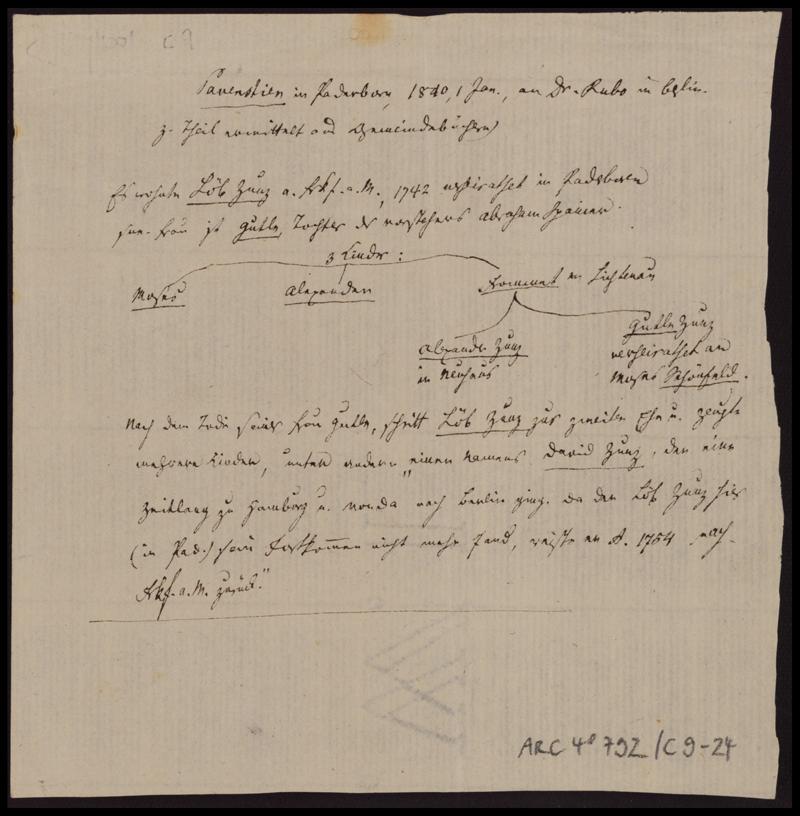 Pavenstien in Paderborn, 1840, 1 Jan., an Dr. Rubo in Berlin.
z. Theil ermittelt aus Gemeindebüchern
Es wohnte Löb Zunz a. Frkf. a. M., 1742 verheirathet in Paderborn
seine Frau ist Gutle, Tochter des Vorstehers Abraham Spanier.
3 Kinder:
Moses Alexander Frommet in Lichtenau
Alexander Zunz
in Neuhaus
Gutle Zunz
verheirathet an
Moses Schönfeld.
Nach dem Tode seiner Frau Gutle, schritt Löb Zunz zur zweiten Ehe u. zeugte
mehrere Kinder, unter andern „einen Namens David Zunz, der eine
Zeitlang zu Hamburg u. von da nach Berlin ging. Da der Löb Zunz hier
(in Pad.) sein Fortkommen nicht mehr fand, reiste er A. 1754 nach
Frkf. a. M. zurück."
ARC 4° 792/C9-24